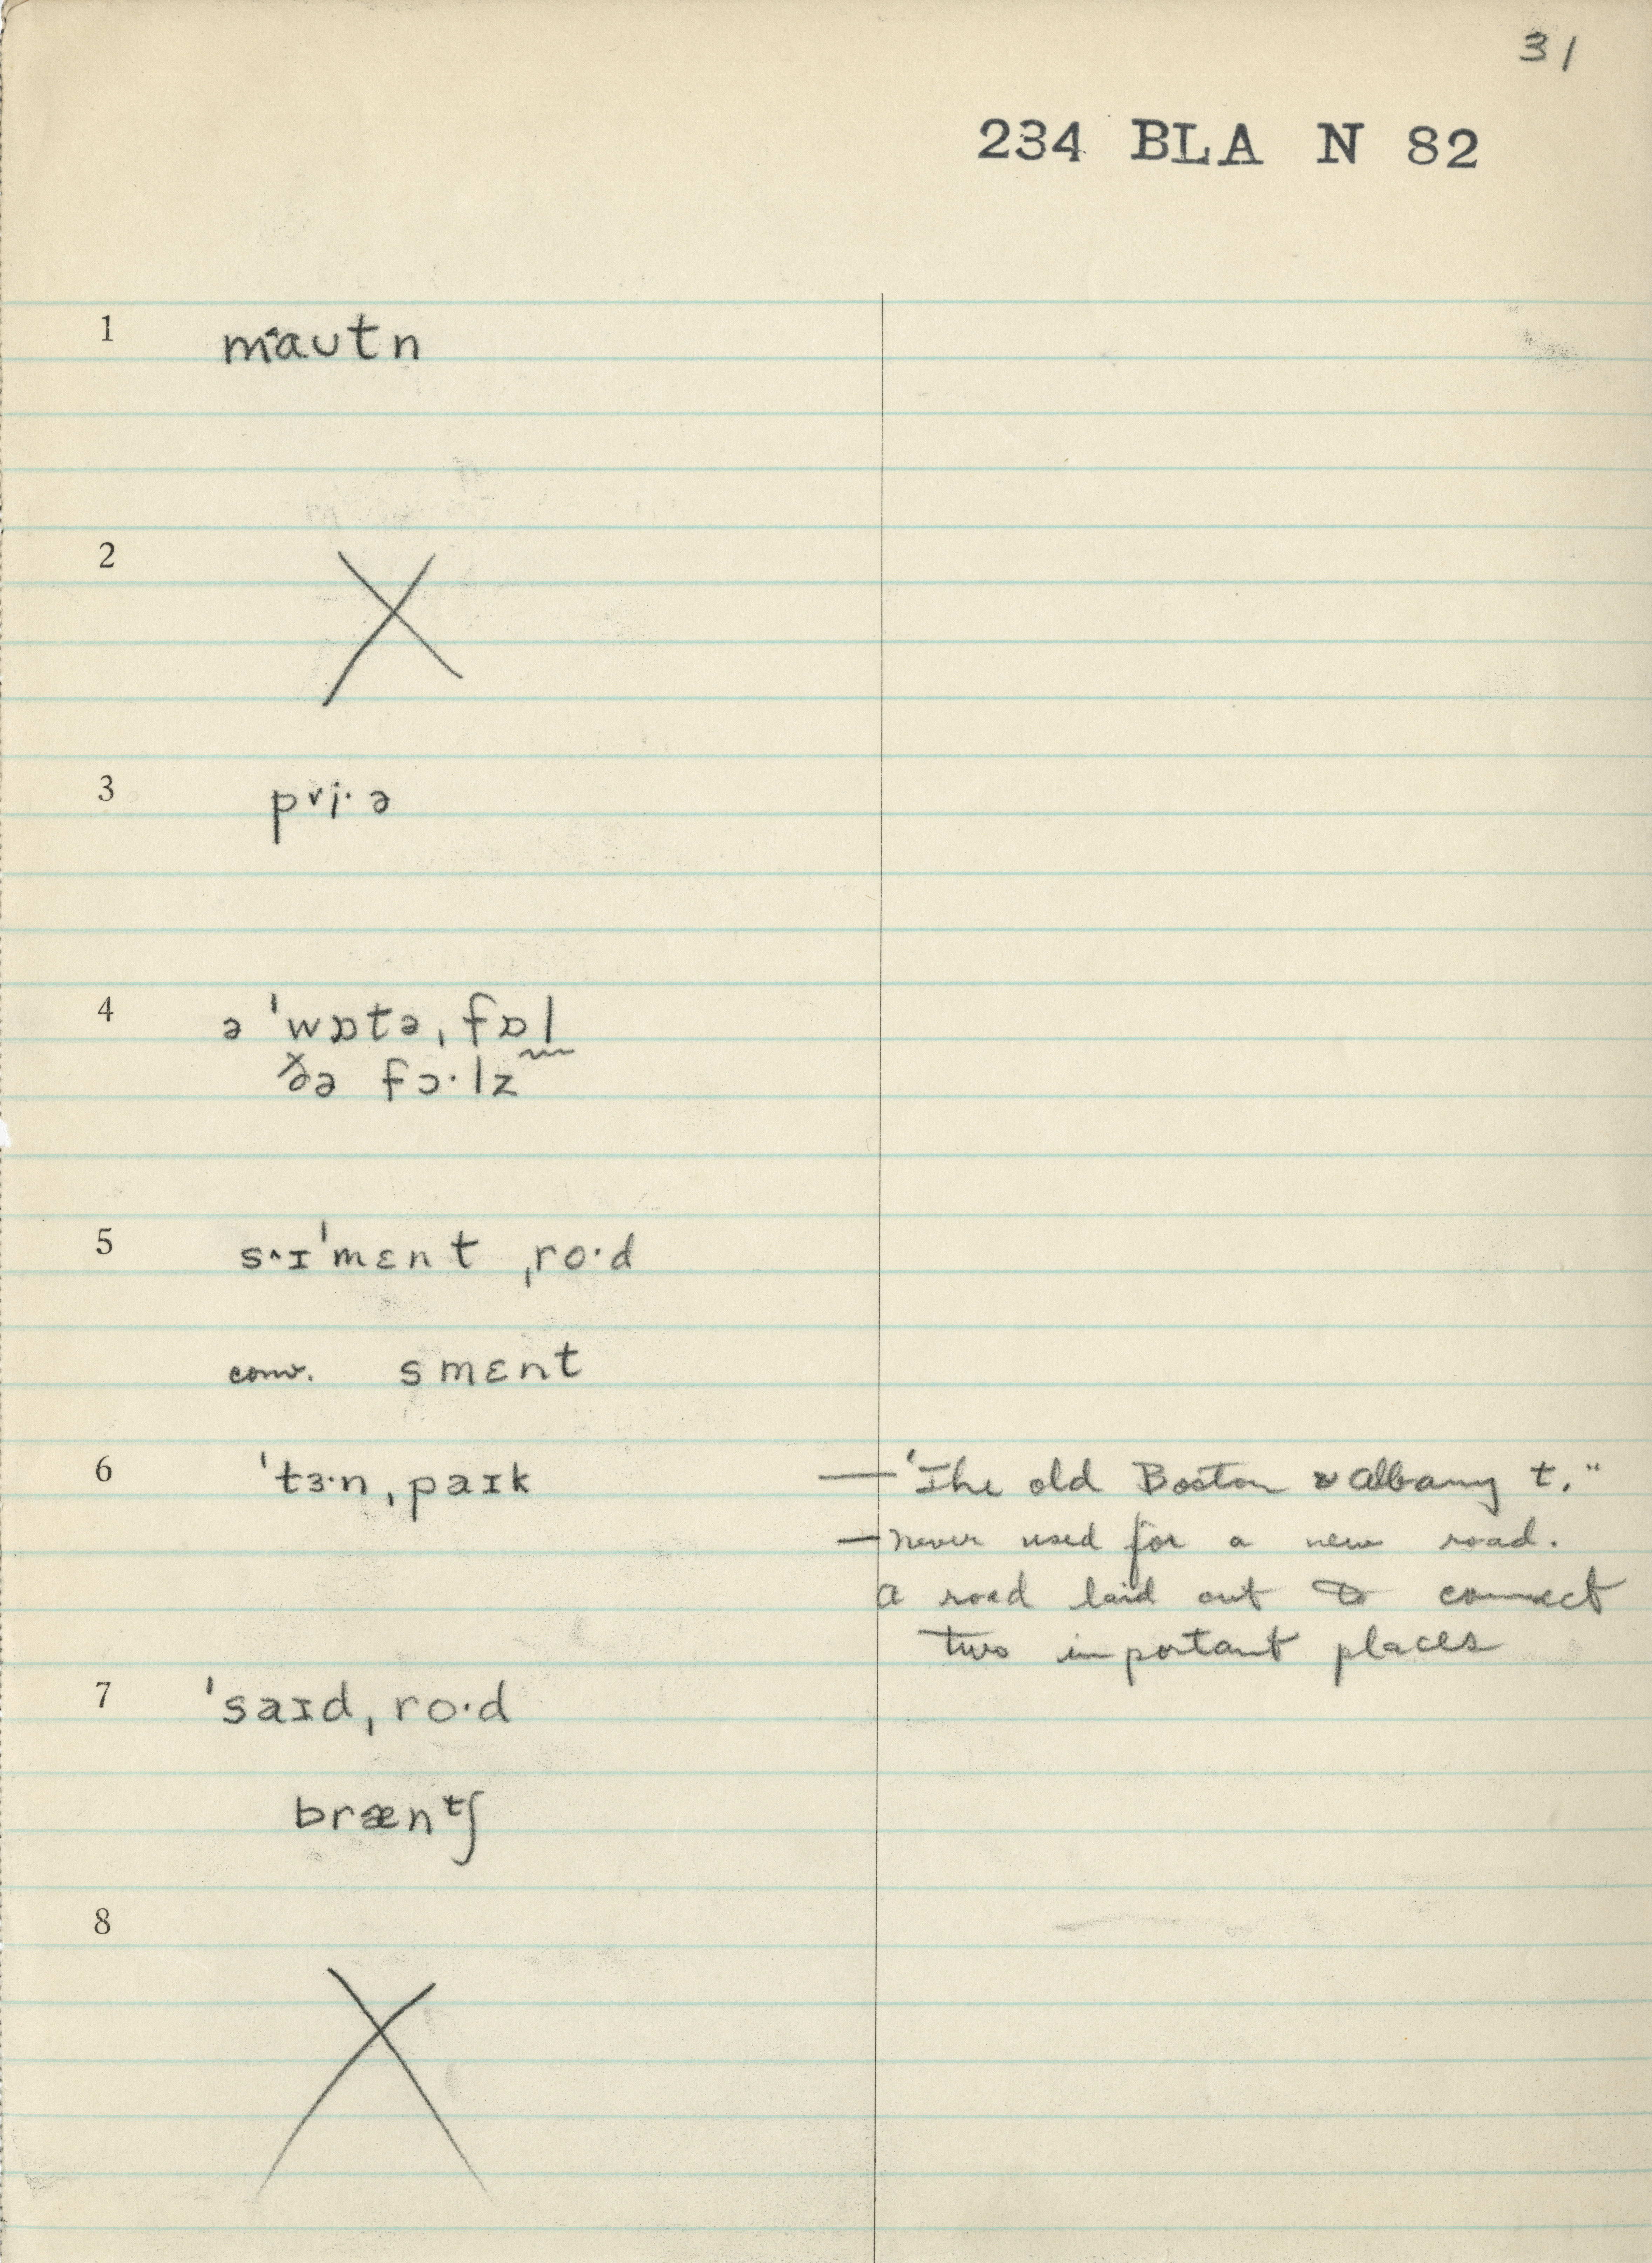 31
234 BLA N 82
1 mˈautn
2 X
3 pᵛi·ə
4 ə ˈwɒtə ˌfɒl
ðə fɔ·lz
5 s^ɪˈmɛnt ˌro·d
conv. smɛnt
6 ˈtɜ·n ˌpaɪk — "The old Boston & Albany t."
— never used for a new road.
A road laid out to connect
two important places
7 ˈsaɪd ˌro·d
brænᵗʃ
8 X